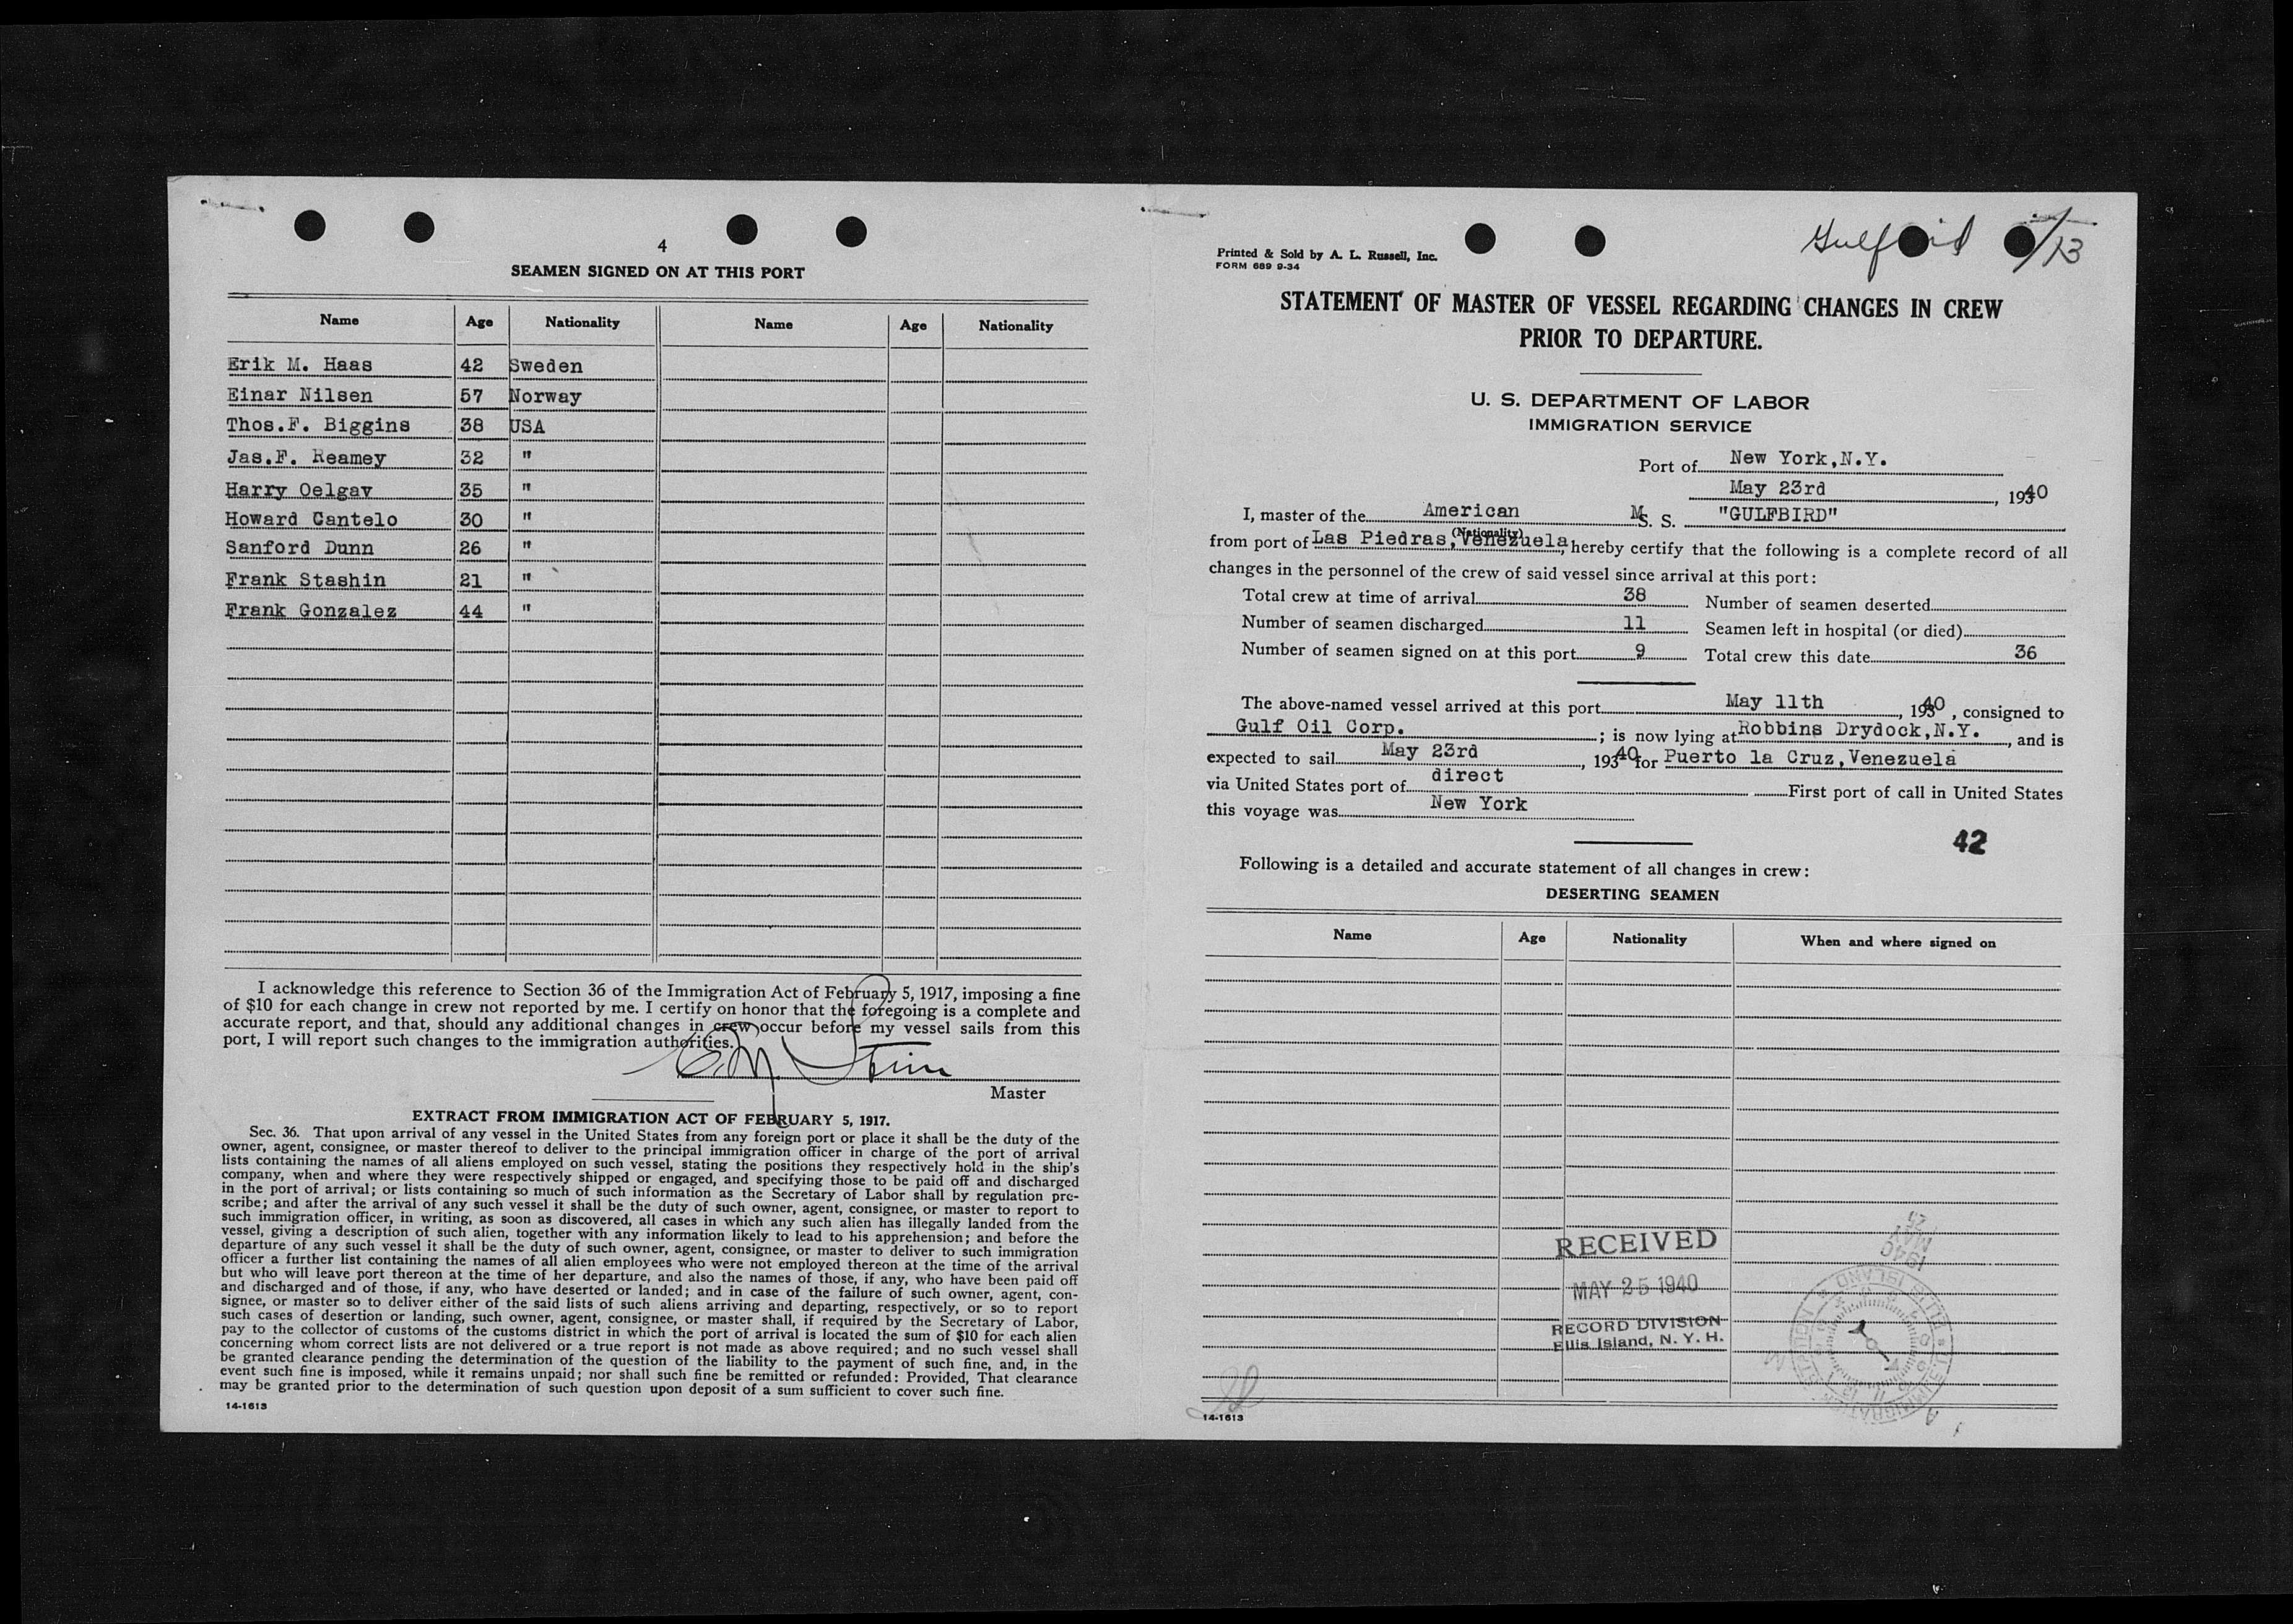 4
SEAMEN SIGNED ON AT THIS PORT
Name Age Nationality Name Age Nationality
Erik M. Haas 42 Sweden
Einar Nilsen 57 Norway
Thos.F. Biggins 38 USA
Jas.F. Reamey 32 "
Harry Oelgav 35 "
Howard Cantelo 30 "
Sanford Dunn 26 "
Frank Stashin 21 "
Frank Gonzalez 44 "
I acknowledge this reference to Section 36 of the Immigration Act of February 5, 1917, imposing a fine
of $10 for each change in crew not reported by me. I certify on honor that the foregoing is a complete and
accurate report, and that, should any additional changes in crew occur before my vessel sails from this
port, I will report such changes to the immigration authorities.
Master
EXTRACT FROM IMMIGRATION ACT OF FEBRUARY 5, 1917.
Sec. 36. That upon arrival of any vessel in the United States from any foreign port or place it shall be the duty of the
owner, agent, consignee, or master thereof to deliver to the principal immigration officer in charge of the port of arrival
lists containing the names of all aliens employed on such vessel, stating the positions they respectively hold in the ship's
company, when and where they were respectively shipped or engaged, and specifying those to be paid off and discharged
in the port of arrival; or lists containing so much of such information as the Secretary of Labor shall by regulation pre-
scribe; and after the arrival of any such vessel it shall be the duty of such owner, agent, consignee, or master to report to
such immigration officer, in writing, as soon as discovered, all cases in which any such alien has illegally landed from the
vessel, giving a description of such alien, together with any information likely to lead to his apprehension; and before the
departure of any such vessel it shall be the duty of such owner, agent, consignee, or master to deliver to such immigration
officer a further list containing the names of all alien employees who were not employed thereon at the time of the arrival
but who will leave port thereon at the time of her departure, and also the names of those, if any, who have been paid off
and discharged and of those, if any, who have deserted or landed; and in case of the failure of such owner, agent, con-
signee, or master so to deliver either of the said lists of such aliens arriving and departing, respectively, or so to report
such cases of desertion or landing, such owner, agent, consignee, or master shall, if required by the Secretary of Labor,
pay to the collector of customs of the customs district in which the port of arrival is located the sum of $10 for each alien
concerning whom correct lists are not delivered or a true report is not made as above required; and no such vessel shall
be granted clearance pending the determination of the question of the liability to the payment of such fine, and, in the
event such fine is imposed, while it remains unpaid; nor shall such fine be remitted or refunded: Provided, That clearance
may be granted prior to the determination of such question upon deposit of a sum sufficient to cover such fine.
14-1613
Printed & Sold by A. L. Russell, Inc.
FORM 689 9-34
STATEMENT OF MASTER OF VESSEL REGARDING CHANGES IN CREW
PRIOR TO DEPARTURE.
U. S. DEPARTMENT OF LABOR
IMMIGRATION SERVICE
Port of New York,N.Y.
May 23rd, 1940
I, master of the American M.S. S. "GULFBIRD"
(Nationality)
from port of Las Piedras,Venezuela, hereby certify that the following is a complete record of all
changes in the personnel of the crew of said vessel since arrival at this port:
Total crew at time of arrival 38 Number of seamen deserted
Number of seamen discharged 11 Seamen left in hospital (or died)
Number of seamen signed on at this port 9 Total crew this date 36
The above-named vessel arrived at this port May 11th, 1940, consigned to
Gulf Oil Corp.; is now lying at Robbins Drydock,N.Y., and is
expected to sail May 23rd, 1940 for Puerto la Cruz,Venezuela
via United States port of direct First port of call in United States
this voyage was New York
42
Following is a detailed and accurate statement of all changes in crew:
DESERTING SEAMEN
Name Age Nationality When and where signed on
RECEIVED
MAY 25 1940
RECORD DIVISION
Ellis Island, N. Y. H.
1940
MAY
25
14-1613